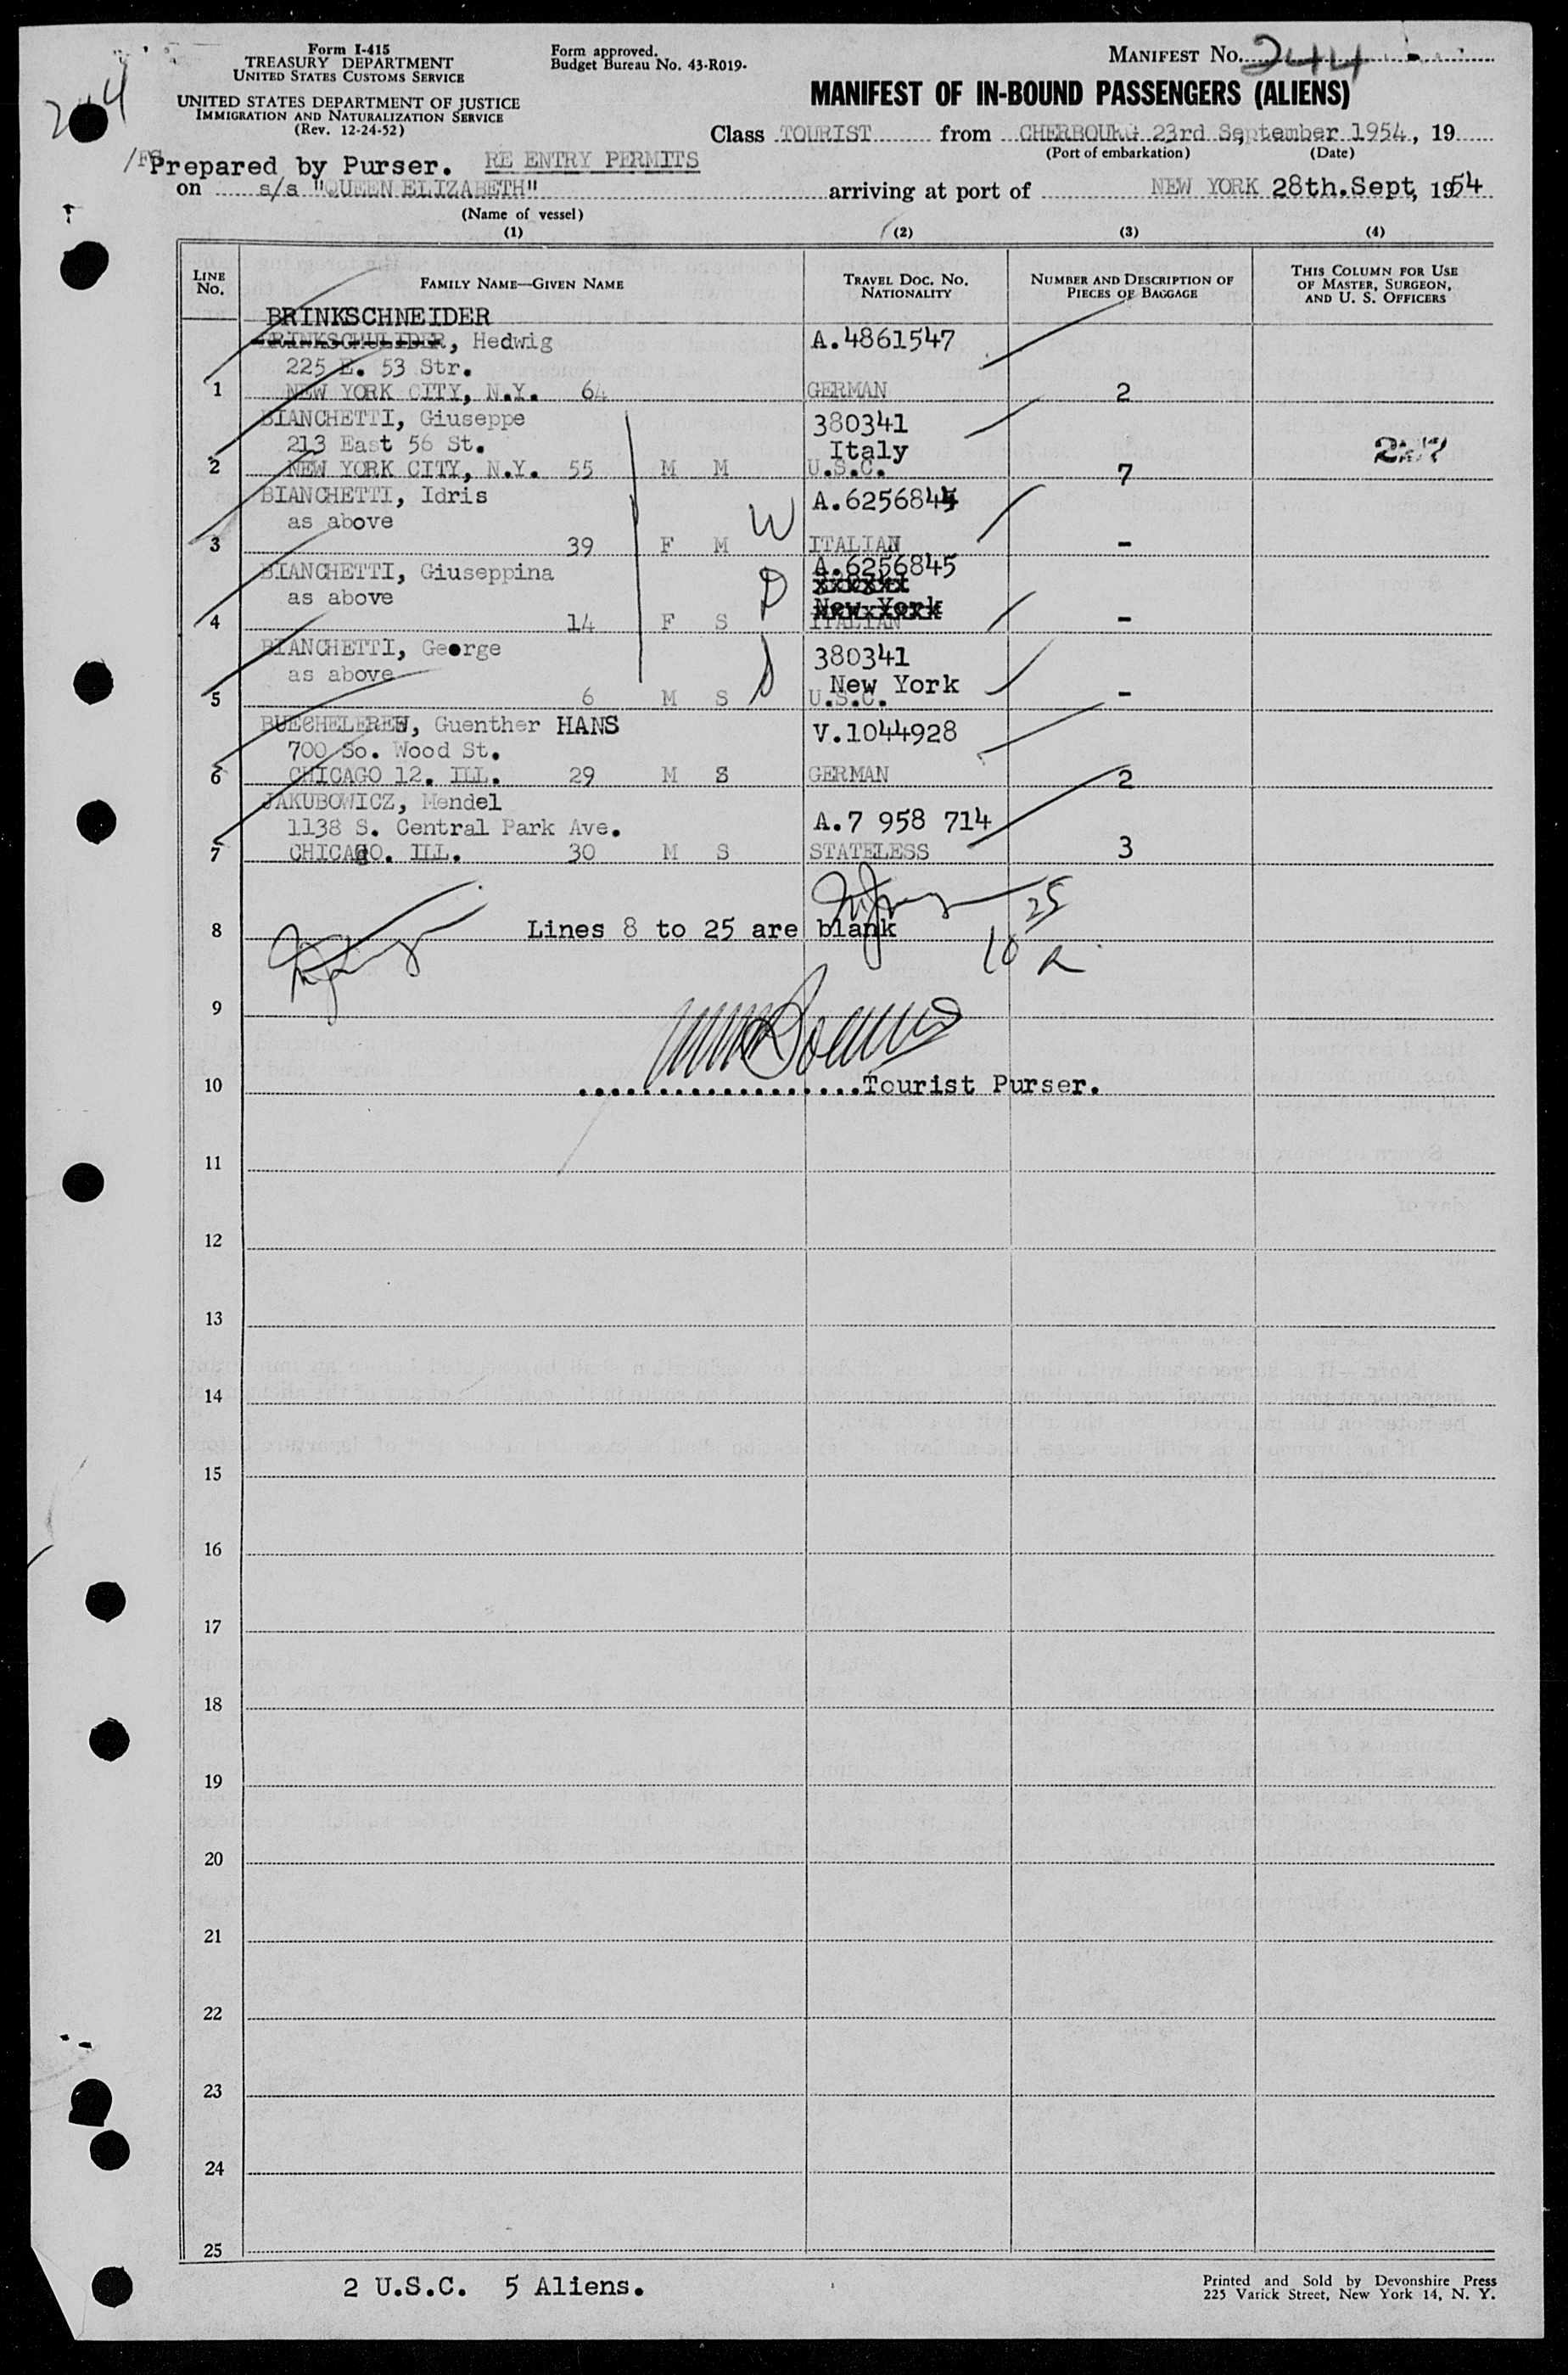 Form I-415
TREASURY DEPARTMENT
UNITED STATES CUSTOMS SERVICE
UNITED STATES DEPARTMENT OF JUSTICE
IMMIGRATION AND NATURALIZATION SERVICE
(Rev. 12-24-52)
Form approved.
Budget Bureau No. 43-R019.
MANIFEST NO. 244
244
MANIFEST OF IN-BOUND PASSENGERS (ALIENS)
Class TOURIST from CHERBOURG 23rd September 1954, 19
(Port of embarkation) (Date)
Prepared by Purser. RE ENTRY PERMITS
on s/s "QUEEN ELIZABETH" arriving at port of NEW YORK 28th.Sept, 1954
(Name of vessel)
(1) (2) (3) (4)
LINE NO. FAMILY NAME—GIVEN NAME TRAVEL DOC. NO. NATIONALITY NUMBER AND DESCRIPTION OF PIECES OF BAGGAGE THIS COLUMN FOR USE OF MASTER, SURGEON, AND U. S. OFFICERS
BRINKSCHNEIDER
BRINKSCHULIDER, Hedwig A.4861547
225 E. 53 Str.
1 NEW YORK CITY, N.Y. 64 GERMAN 2
BIANCHETTI, Giuseppe 380341
213 East 56 St. Italy
2 NEW YORK CITY, N.Y. 55 M M U.S.C. 7
BIANCHETTI, Idris A.6256844
as above W
3 39 F M ITALIAN -
BIANCHETTI, Giuseppina A.6256845
as above D New York
4 14 F S ITALIAN -
BIANCHETTI, George 380341
as above New York
5 6 M S U.S.C. -
BUECHELEREN, Guenther HANS V.1044928
700 So. Wood St.
6 CHICAGO 12. ILL. 29 M S GERMAN 2
JAKUBOWICZ, Mendel
1138 S. Central Park Ave. A.7 958 714
7 CHICAGO. ILL. 30 M S STATELESS 3
8 Lines 8 to 25 are blank
9
10 Tourist Purser.
11
12
13
14
15
16
17
18
19
20
21
22
23
24
25
2 U.S.C. 5 Aliens.
Printed and Sold by Devonshire Press
225 Varick Street, New York 14, N. Y.